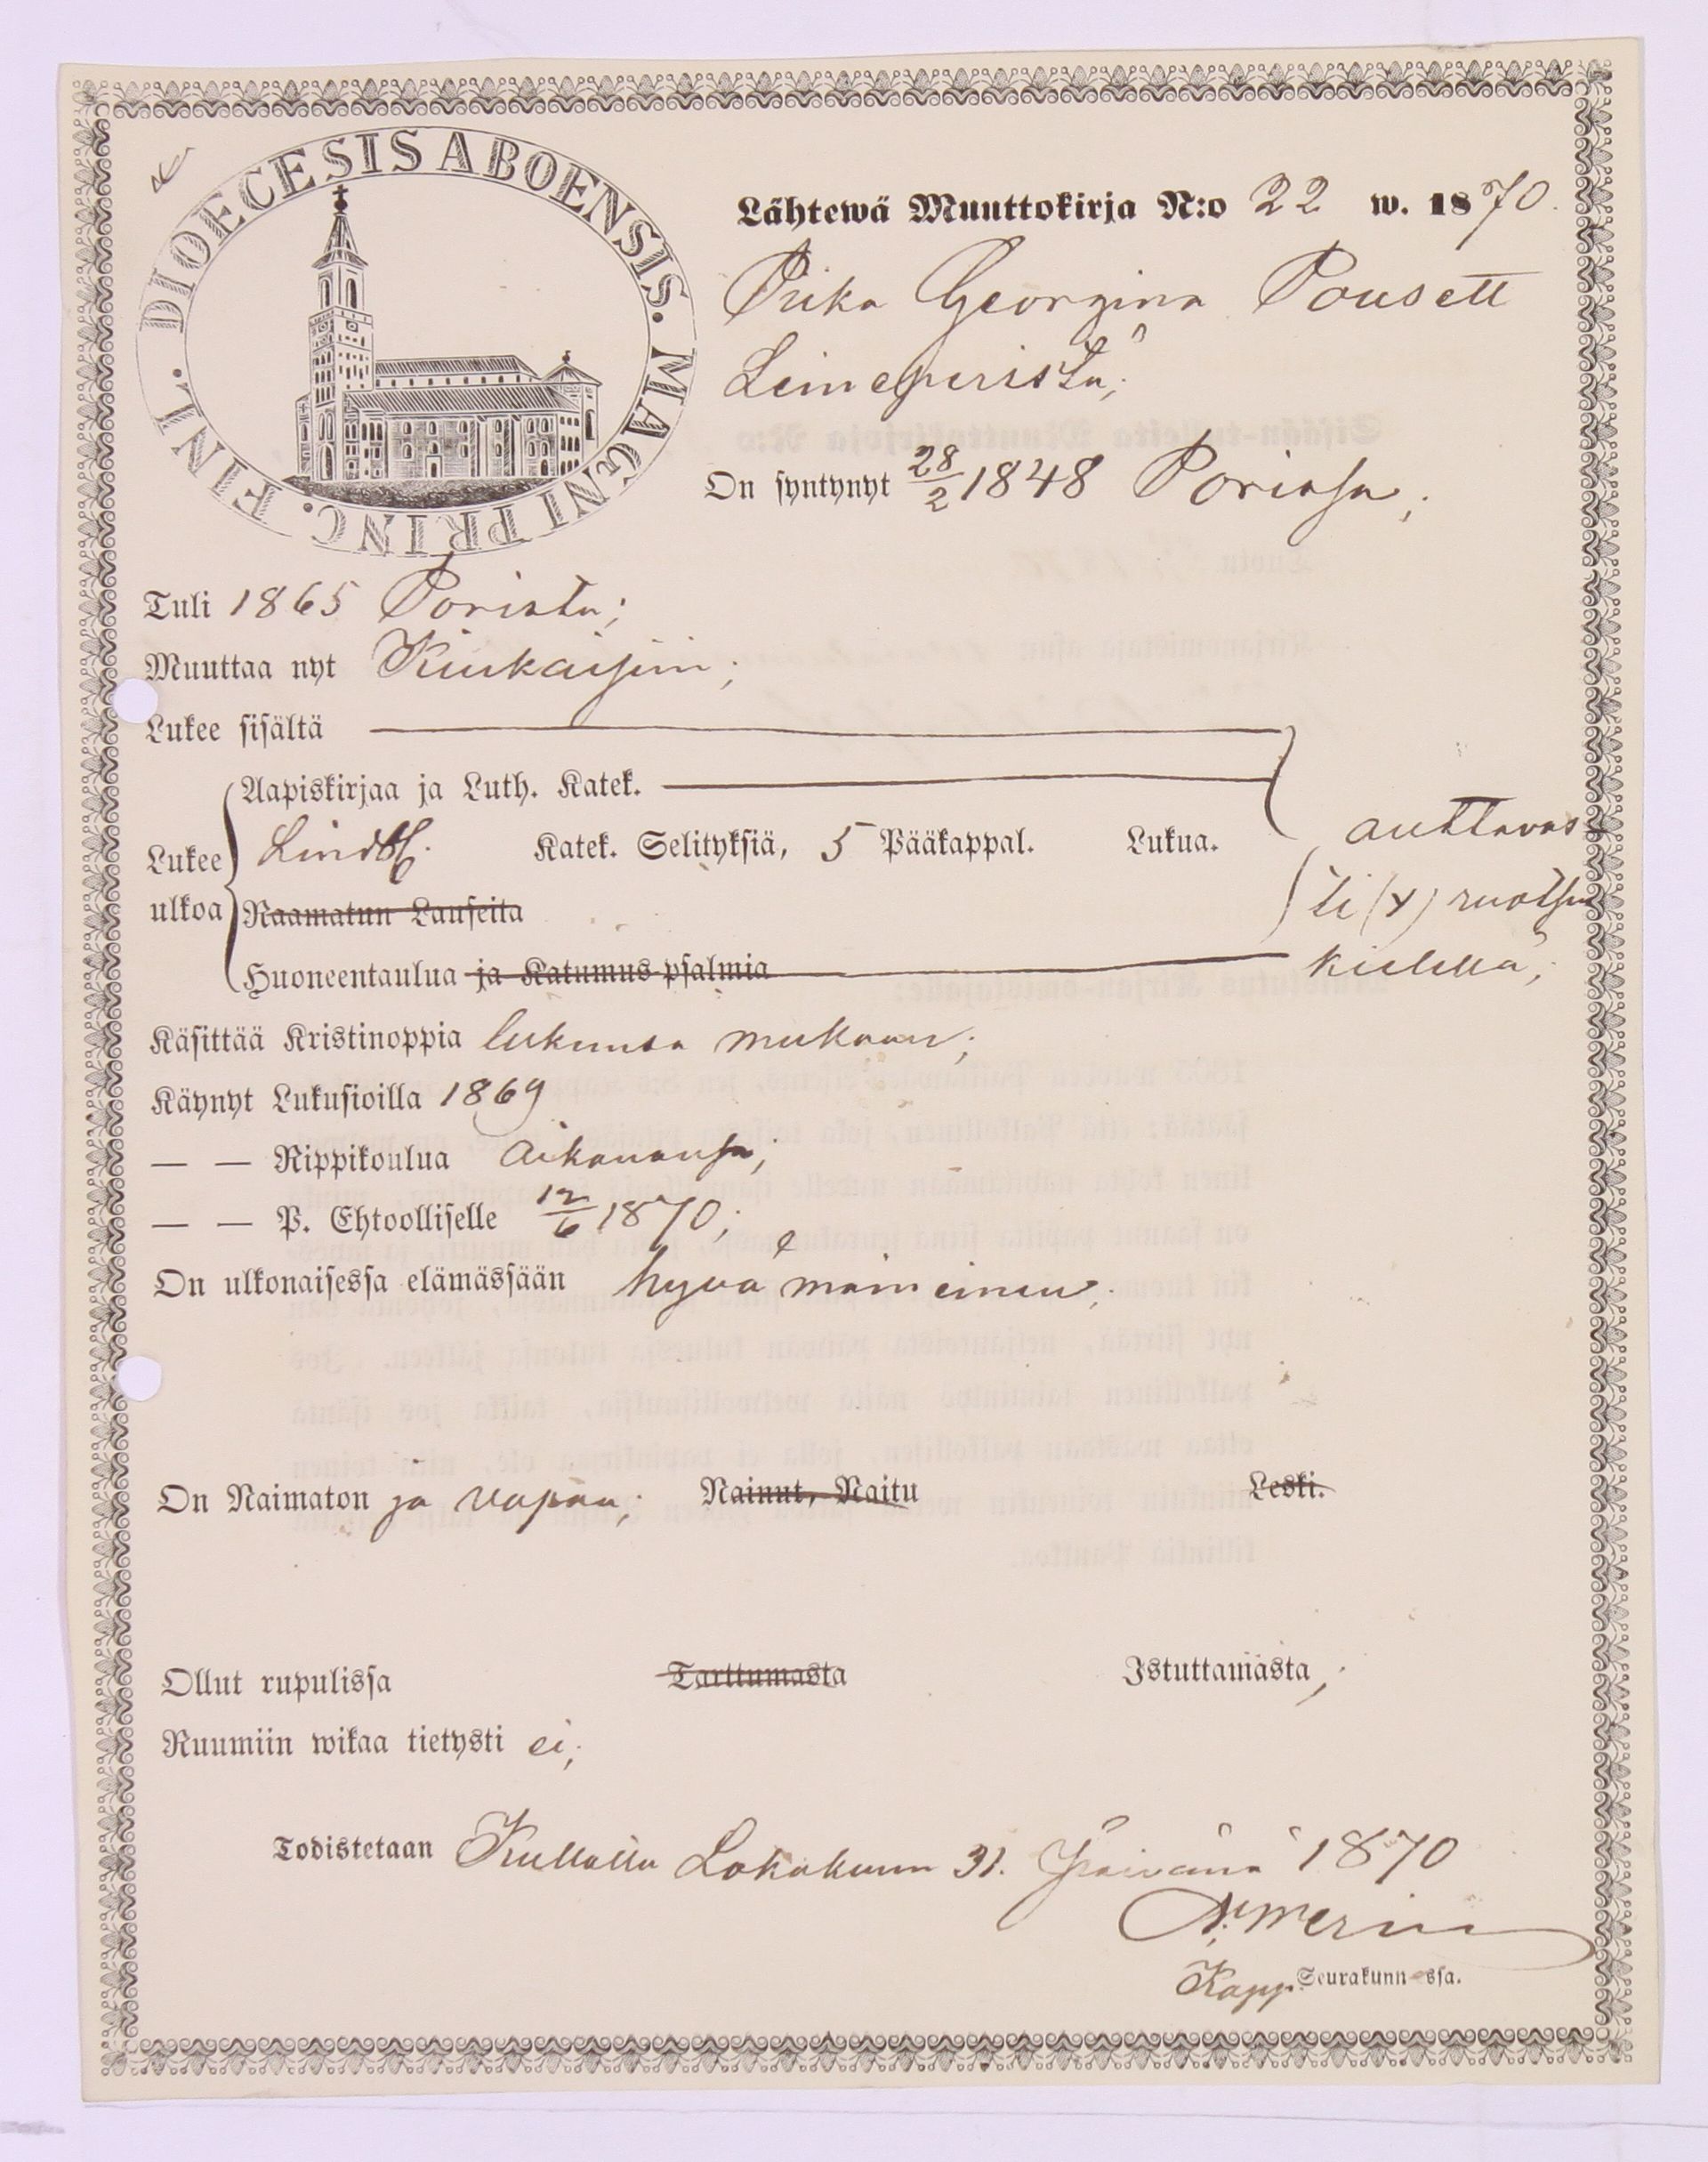 DIOECESIS ABOENSIS. MAGNI PRINC. FINL.
Lähtewä Muuttokirja N:o 22 w. 1870.
Piika Georgina Pousett
Leineperistä;
On syntynyt 28/2 1848 Porissa;
Tuli 1865 Porista;
Muuttaa nyt Kiukaisiin;
Lukee sisältä
Aapiskirjaa ja Luth. Katek.
Lukee ulkoa
Lindbl. Katek. Selityksiä, 5 Pääkappal. Lukua.
auttavas
Raamatun Lauseita
ti (+) ruotsin
Huoneentaulua ja Katumus-psalmia
kielellä;
Käsittää Kristinoppia lukunsa mukaan;
Käynyt Lukusioilla 1869
— — Rippikoulua aikanansa;
— — P. Ehtoolliselle 12/6 1870;
On ulkonaisessa elämässään hyvä maineinen;
On Naimaton ja vapaa; Nainut, Naitu Leski.
Ollut rupulissa Tarttumasta Istuttamasta;
Ruumiin wikaa tietysti ei;
Todistetaan Kullalla Lokakuun 31. Päivänä 1870
Kapp. Seurakunn-ssa.